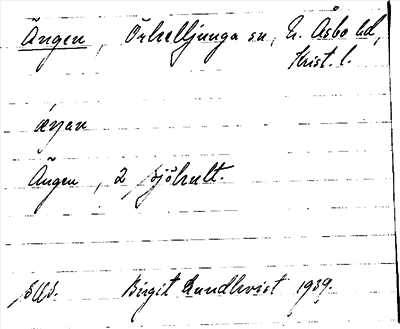 Ängen, Örkelljunga sn, N. Åsbo hd,
Krist. l.
Ängen, 2 Sjöhult.
Birgit Lundkvist 1939.